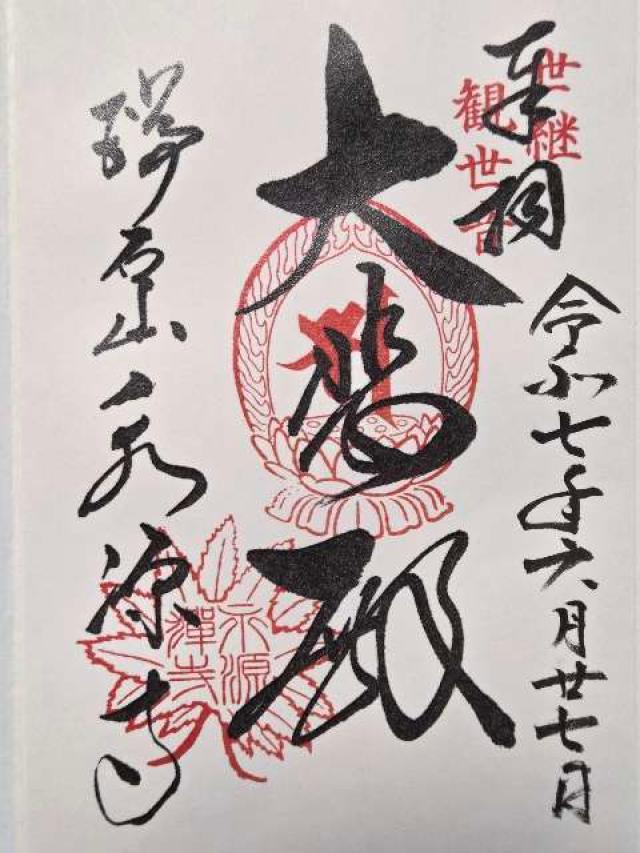 奉
世継
観世音
令和七年六月廿七日
大悲殿
瑞石山永源寺
永源
禪寺